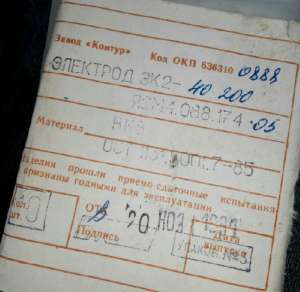 Завод «Контур" Код ОКП 636310 0888
ЭЛЕКТРОД ЭК2- 40 200
088.174 -05
Материал ВК6
ОСТ 7-85
Изделия прошли приемо-сдаточные испытания
признаны годными для эксплуатации
ОТК 20 НОЯ
Подпись Дата выпуска
УПАКОВ. №3